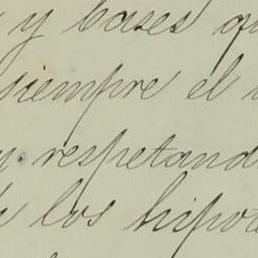 y bases
siempre el
respetand
los hipot